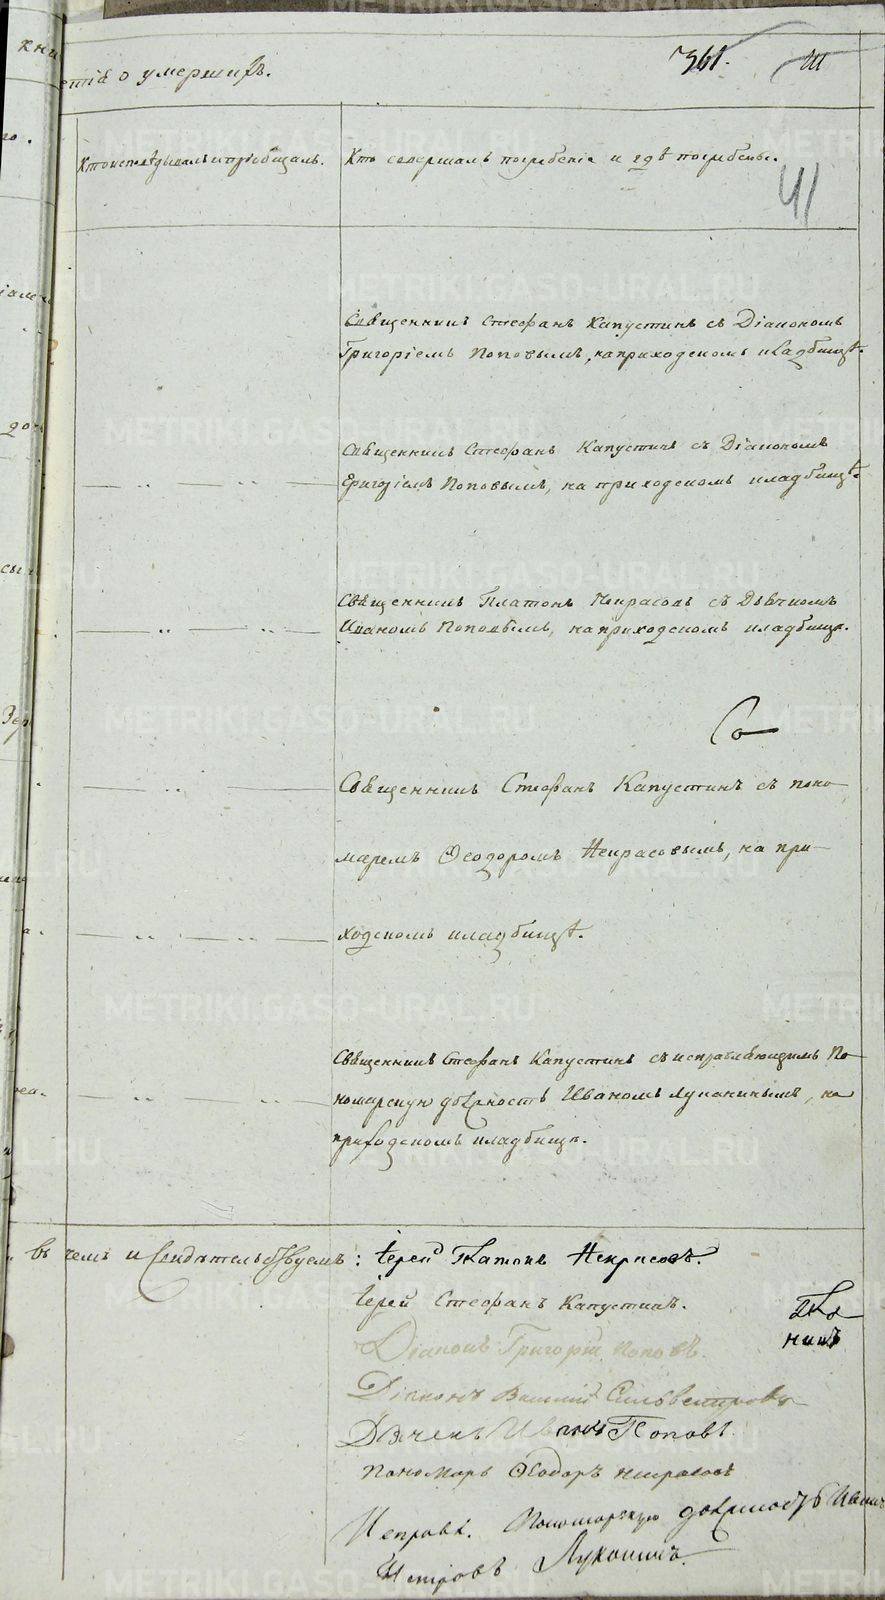 кни
етiа о умершихъ.
361.
Ш
Кто исповѣдывалъ и прiобщалъ.
Кто совершалъ погребенiе и гдѣ погребены.
41
Священникъ Стефанъ Капустинъ съ Дiакономъ
Григорiемъ Поповымъ, на приходскомъ кладбищѣ.
Священникъ Стефанъ Капустинъ съ Дiакономъ
Григорiемъ Поповымъ, на приходскомъ кладбищѣ.
Священникъ Платонъ Некрасовъ съ Дьячкомъ
Иваномъ Поповымъ, на приходскомъ кладбищѣ.
Со
Священникъ Стефанъ Капустинъ съ поно-
маремъ Ѳеодоромъ Некрасовымъ, на при-
ходскомъ кладбищѣ.
Священникъ Стефанъ Капустинъ съ исправляющимъ По-
номарскую должность Иваномъ Луканинымъ, на
приходскомъ кладбищѣ.
въ чемъ и свидѣтельствуемъ: Iерей Платонъ Некрасовъ.
Iерей Стефанъ Капустинъ.
Дiаконъ Григорiй Поповъ.
Дiаконъ Василiй Сильвестровъ
Дьячекъ Иванъ Поповъ.
Пономарь Ѳеодоръ Некрасовъ
Исправл. Пономарскую должность Иванъ
Петровъ Луканинъ.
METRIKI.GASO-URAL.RU